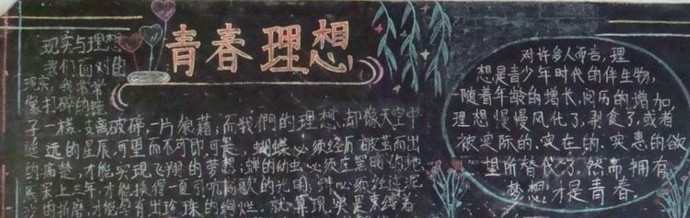 青春理想
现实与理想
我们面对自
现实，我常常
像打碎的镜
子一样，支离破碎，一片狼藉，而我們的理想，却像天空中
遥远的星辰，可望而不可即，可是，蝴蝶必须经历破茧而出
的痛楚，才能实现飞翔的梦想；蝉的幼虫必须在黑暗的地
底呆上三年，才能换得一夏引吭高歌的光阴；蚌必须经过泥
沙的折磨，才能孕育出珍珠的绚烂。就算现实是束缚着
对许多人而言，理
想是青少年时代的伴生物，
随着年龄的增长，阅历的增加，
理想慢慢风化了，剥食了，或者
被实际的，实在的，实惠的欲
望所替代了，然而，拥有
梦想才是青春